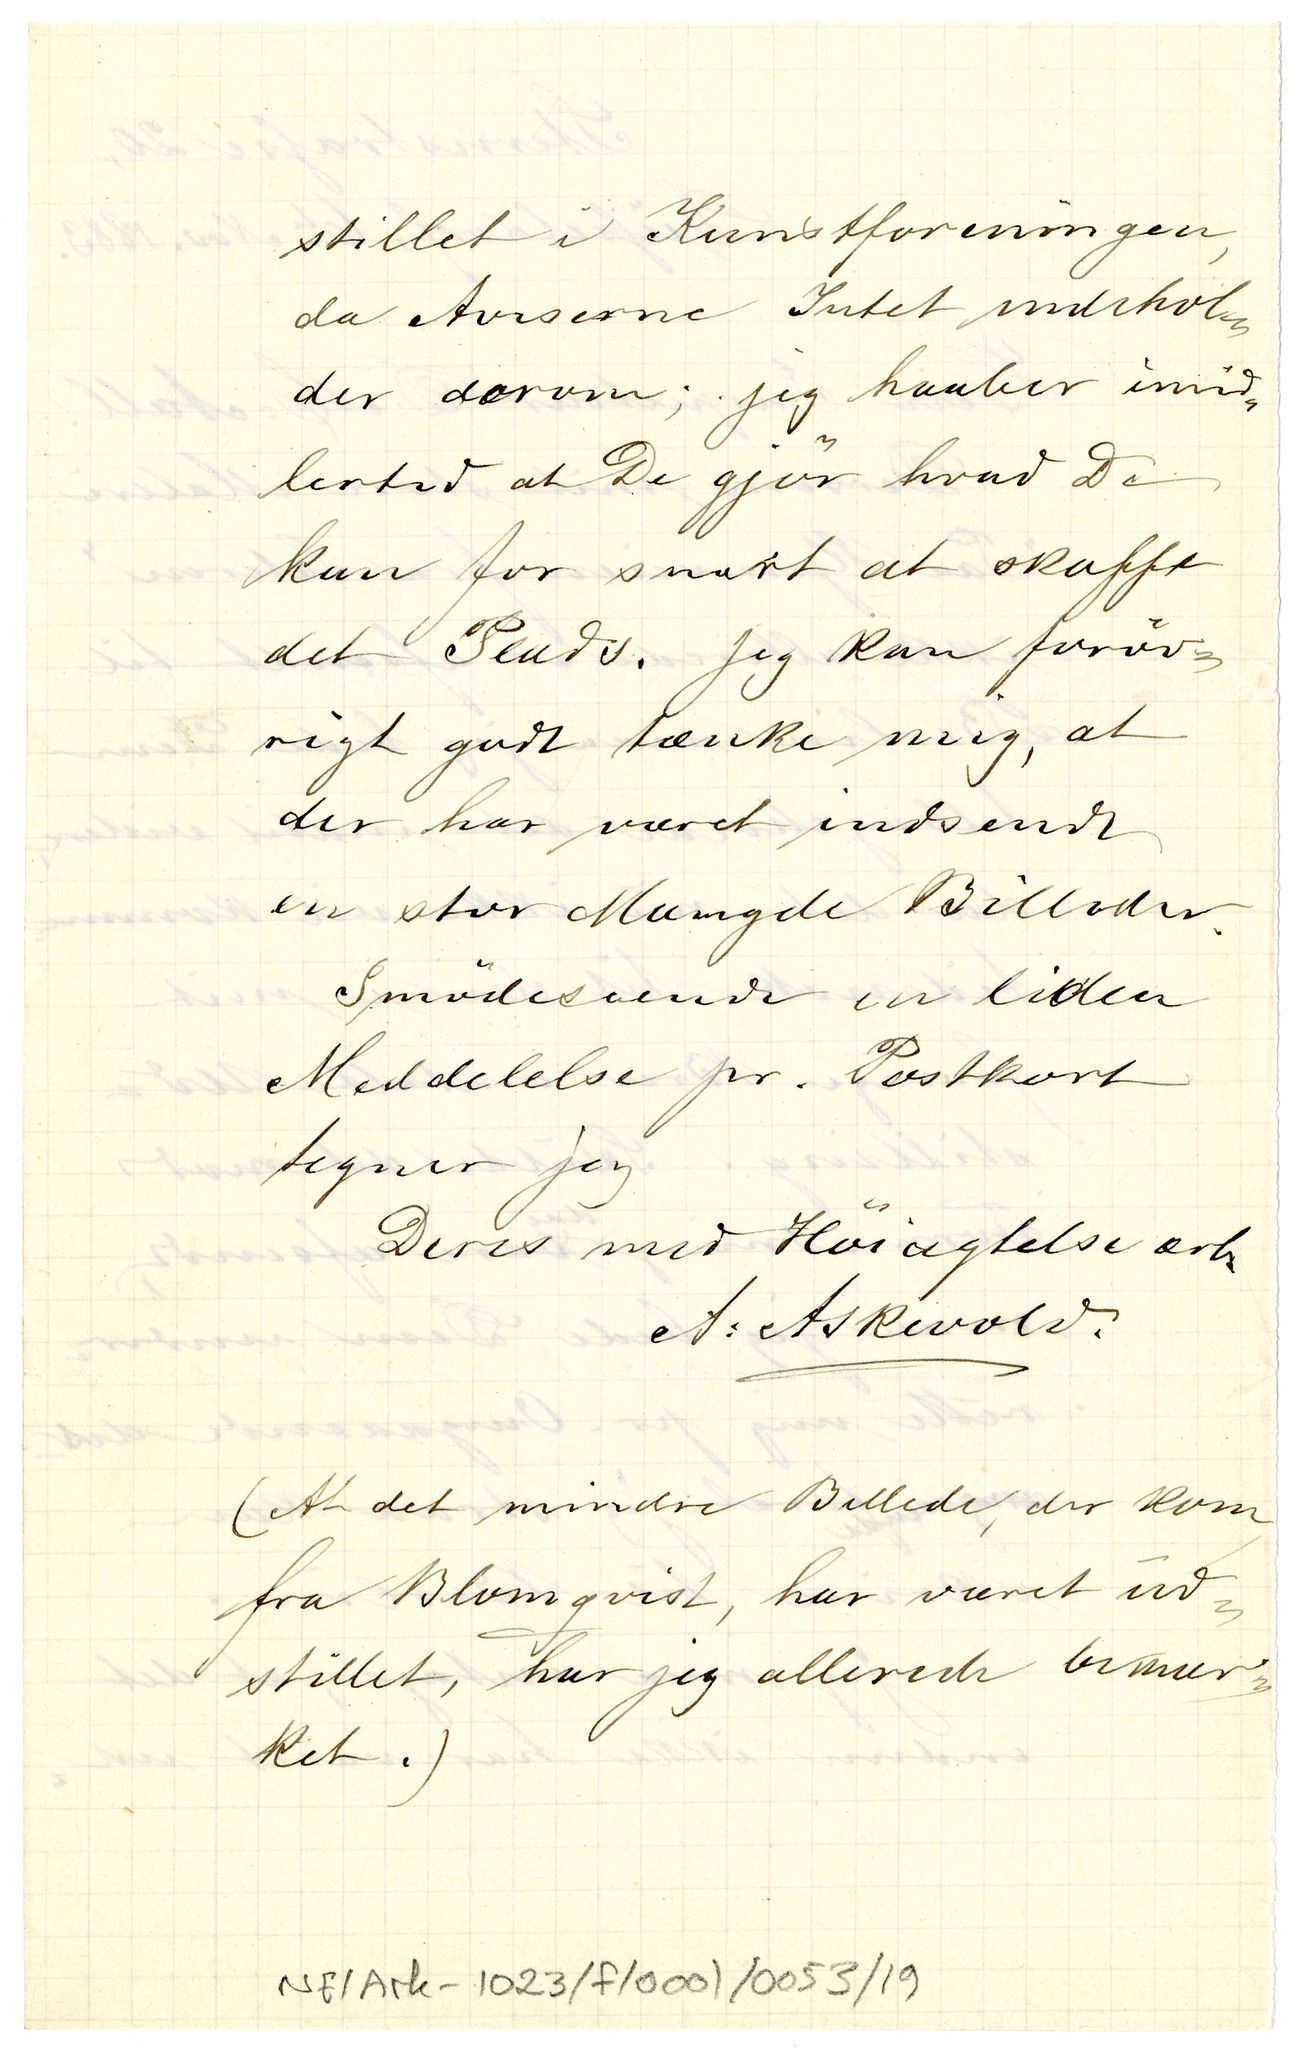 stillet i Kunstforeningen,
da Aviserne Intet indehol„
der derom; jeg haaber imid„
lertid at De gjör hvad De
kan for snart at skaffe
det Plads. Jeg kan foröv„
rigt godt tænke mig, at
der har været indsendt
en stor Mængde Billeder.
Imödeseende en liden
Meddelelse pr. Postkort
tegner jeg
Deres med Höiagtelse erb.
A. Askevold.
(At det mindre Billede, der kom
fra Blomqvist, har været ud„
stillet, har jeg allerede bemær„
ket.)
NF/Ark-1023/F/0001/0053/19